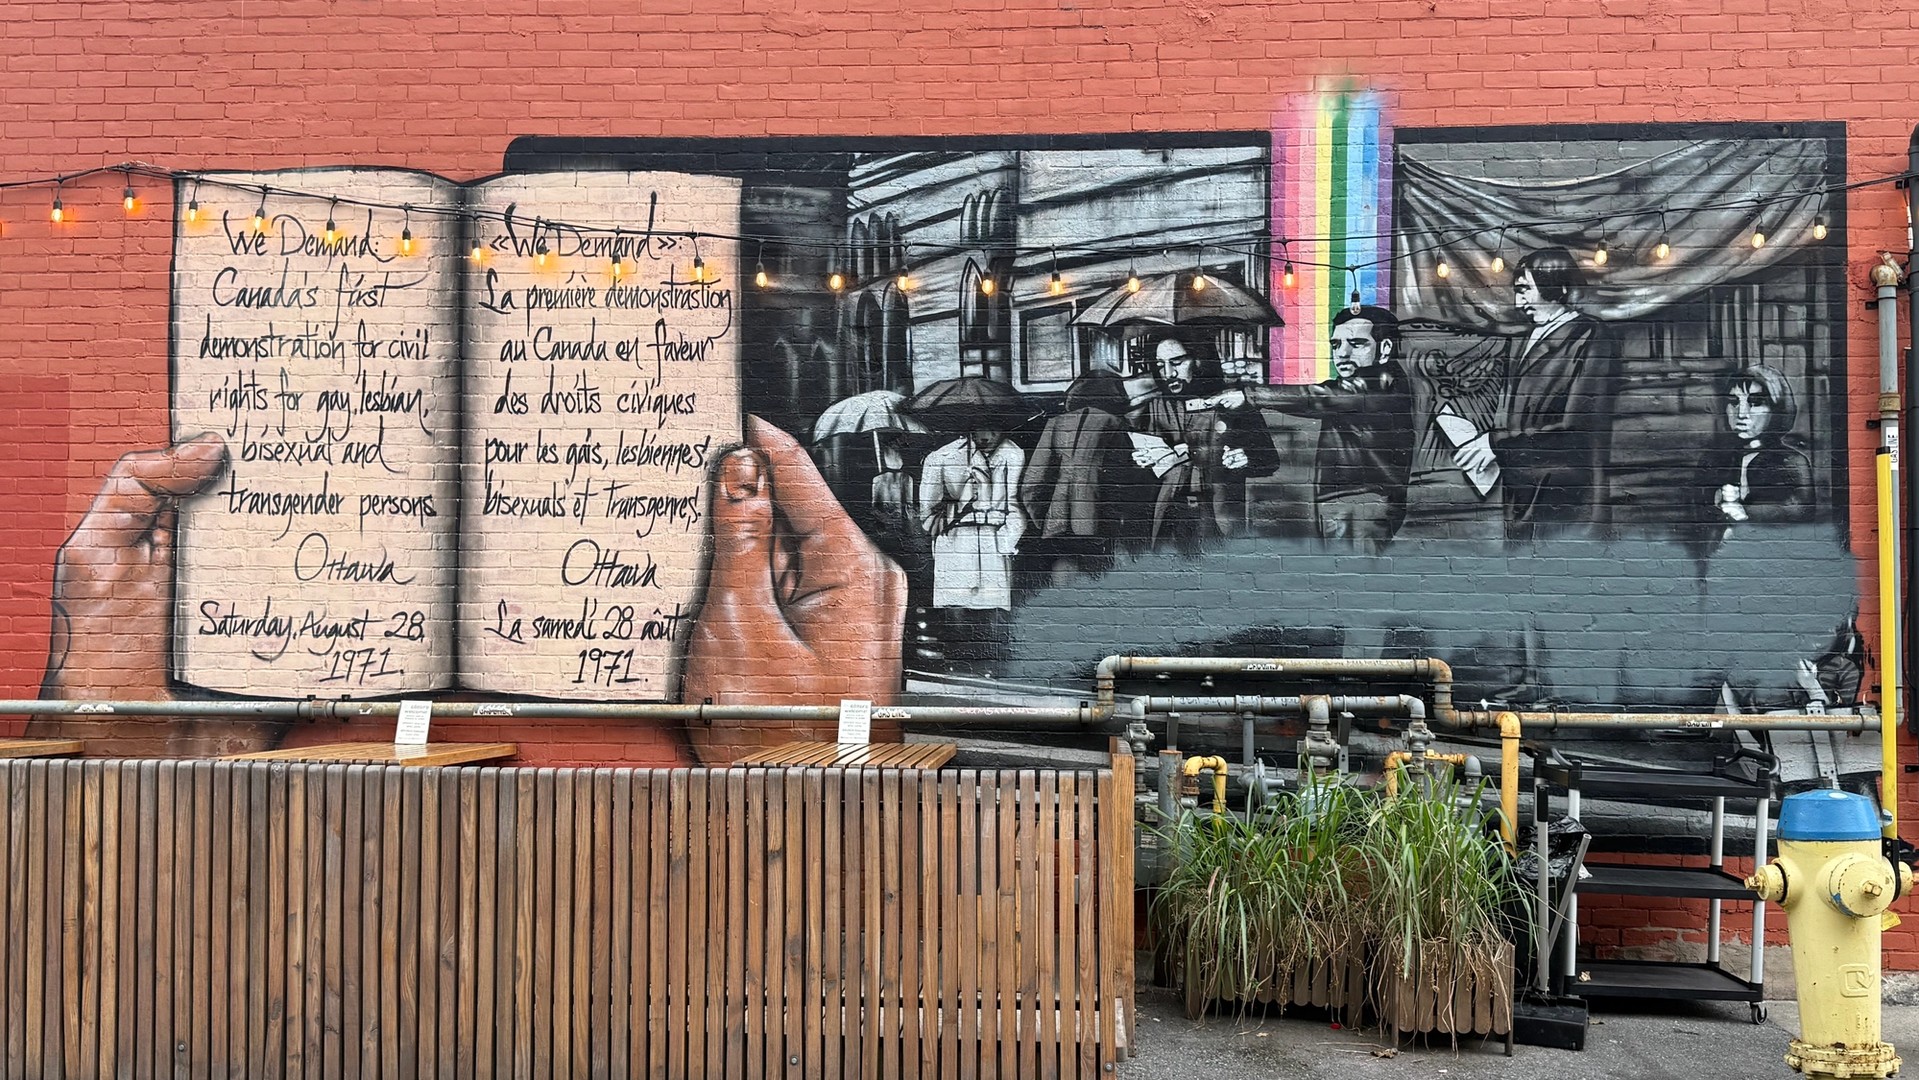 We Demand:
Canada's first
demonstration for civil
rights for gay, lesbian,
bisexual and
transgender persons
Ottawa
Saturday, August 28,
1971.
«We Demand»:
La première demonstrastion
au Canada en faveur
des droits civiques
pour les gais, lesbiennes,
bisexuals et transgenres,
Ottawa
La samedi 28 août
1971.
GAS LINE
GAS LINE